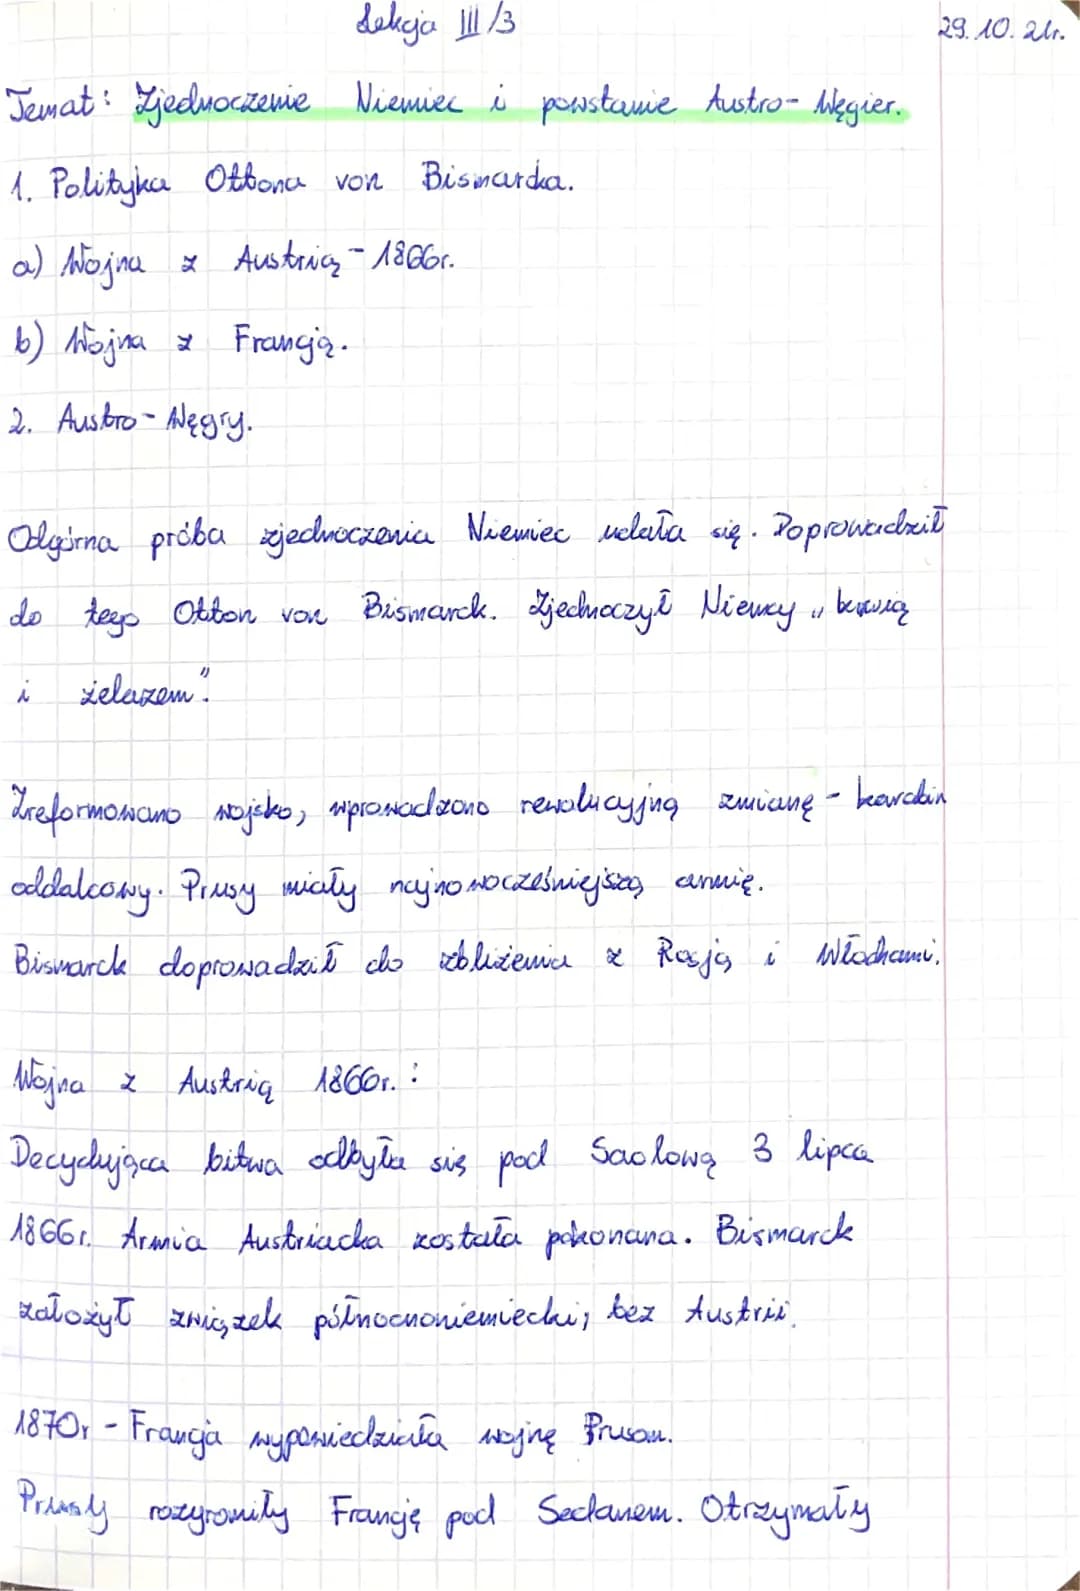 Lekcja III/3
29.10.21r.
Temat: Zjednoczenie Niemiec i powstanie Austro-Węgier.
1. Polityka Ottona von Bismarcka.
a) Wojna z Austrią - 1866r.
b) Wojna z Francją.
2. Austro-Węgry.
Odgórna próba zjednoczenia Niemiec udała się. Doprowadził
do tego Otton von Bismarck. Zjednoczył Niemcy „krwią
i żelazem".
Zreformowano wojsko, wprowadzono rewolucyjną zmianę - karabin
oddalcowy. Prusy miały najnowocześniejszą armię.
Bismarck doprowadził do zbliżenia z Rosją i Włochami.
Wojna z Austrią 1866r. :
Decydująca bitwa odbyła się pod Sadową 3 lipca
1866r. Armia Austriacka została pokonana. Bismarck
założył związek północnoniemiecki, bez Austrii.
1870r - Francja wypowiedziała wojnę Prusom.
Prusy rozgromiły Francję pod Sedanem. Otrzymały